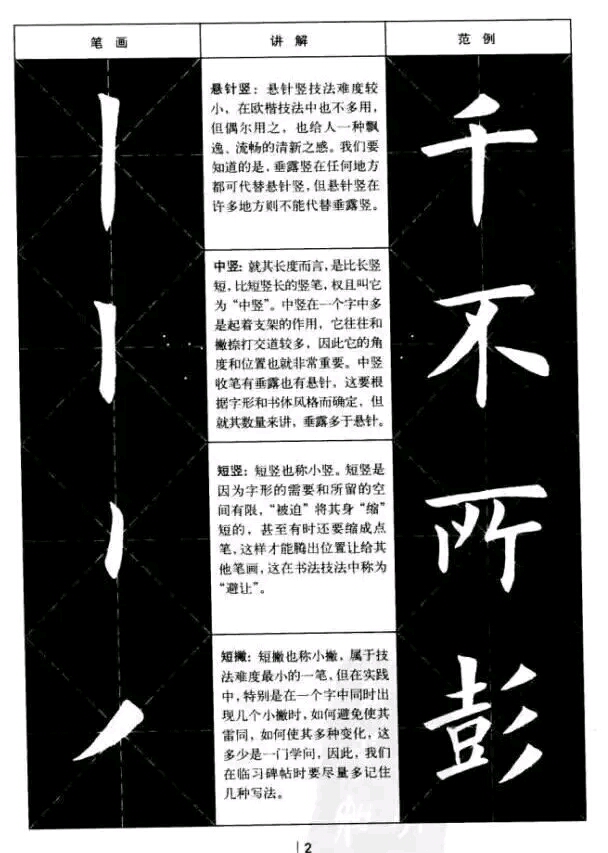 笔画 讲解 范例
悬针竖：悬针竖技法难度较
小，在欧楷技法中也不多用，
但偶尔用之，也给人一种飘
逸、流畅的清新之感。我们要
知道的是，垂露竖在任何地方
都可代替悬针竖，但悬针竖在
许多地方则不能代替垂露竖。
千
中竖：就其长度而言，是比长竖
短，比短竖长的竖笔，权且叫它
为“中竖”。中竖在一个字中多
是起着支架的作用，它往往和
撇捺打交道较多，因此它的角
度和位置也就非常重要。中竖
收笔有垂露也有悬针，这要根
据字形和书体风格而确定，但
就其数量来讲，垂露多于悬针。
不
短竖：短竖也称小竖。短竖是
因为字形的需要和所留的空
间有限，“被迫”将其身“缩”
短的，甚至有时还要缩成点
笔，这样才能腾出位置让给其
他笔画，这在书法技法中称为
“避让”。
所
短撇：短撇也称小撇，属于技
法难度最小的一笔，但在实践
中，特别是在一个字中同时出
现几个小撇时，如何避免使其
雷同，如何使其多种变化，这
多少是一门学问，因此，我们
在临习碑帖时要尽量多记住
几种写法。
彭
12